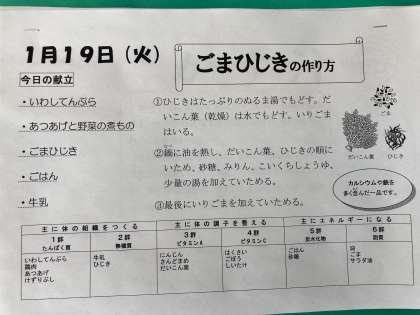 1月19日（火）
ごまひじきの作り方
今日の献立
・いわしてんぷら
・あつあげと野菜の煮もの
・ごまひじき
・ごはん
・牛乳
①ひじきはたっぷりのぬるま湯でもどす。だ
いこん葉（乾燥）は水でもどす。いりごま
はいる。
②鍋に油を熱し、だいこん葉、ひじきの順に
いため、砂糖、みりん、こいくちしょうゆ、
少量の湯を加えていためる。
③最後にいりごまを加えていためる。
ごま
だいこん葉
ひじき
カルシウムや鉄を
多く含んだ一品です。
主に体の組織をつくる
主に体の調子を整える
主にエネルギーになる
1群
たんぱく質
2群
無機質
3群
ビタミンA
4群
ビタミンC
5群
炭水化物
6群
脂質
いわしてんぷら
鶏肉
あつあげ
けずりぶし
牛乳
ひじき
にんじん
さんどまめ
だいこん葉
はくさい
ごぼう
しいたけ
ごはん
砂糖
油
ごま
サラダ油